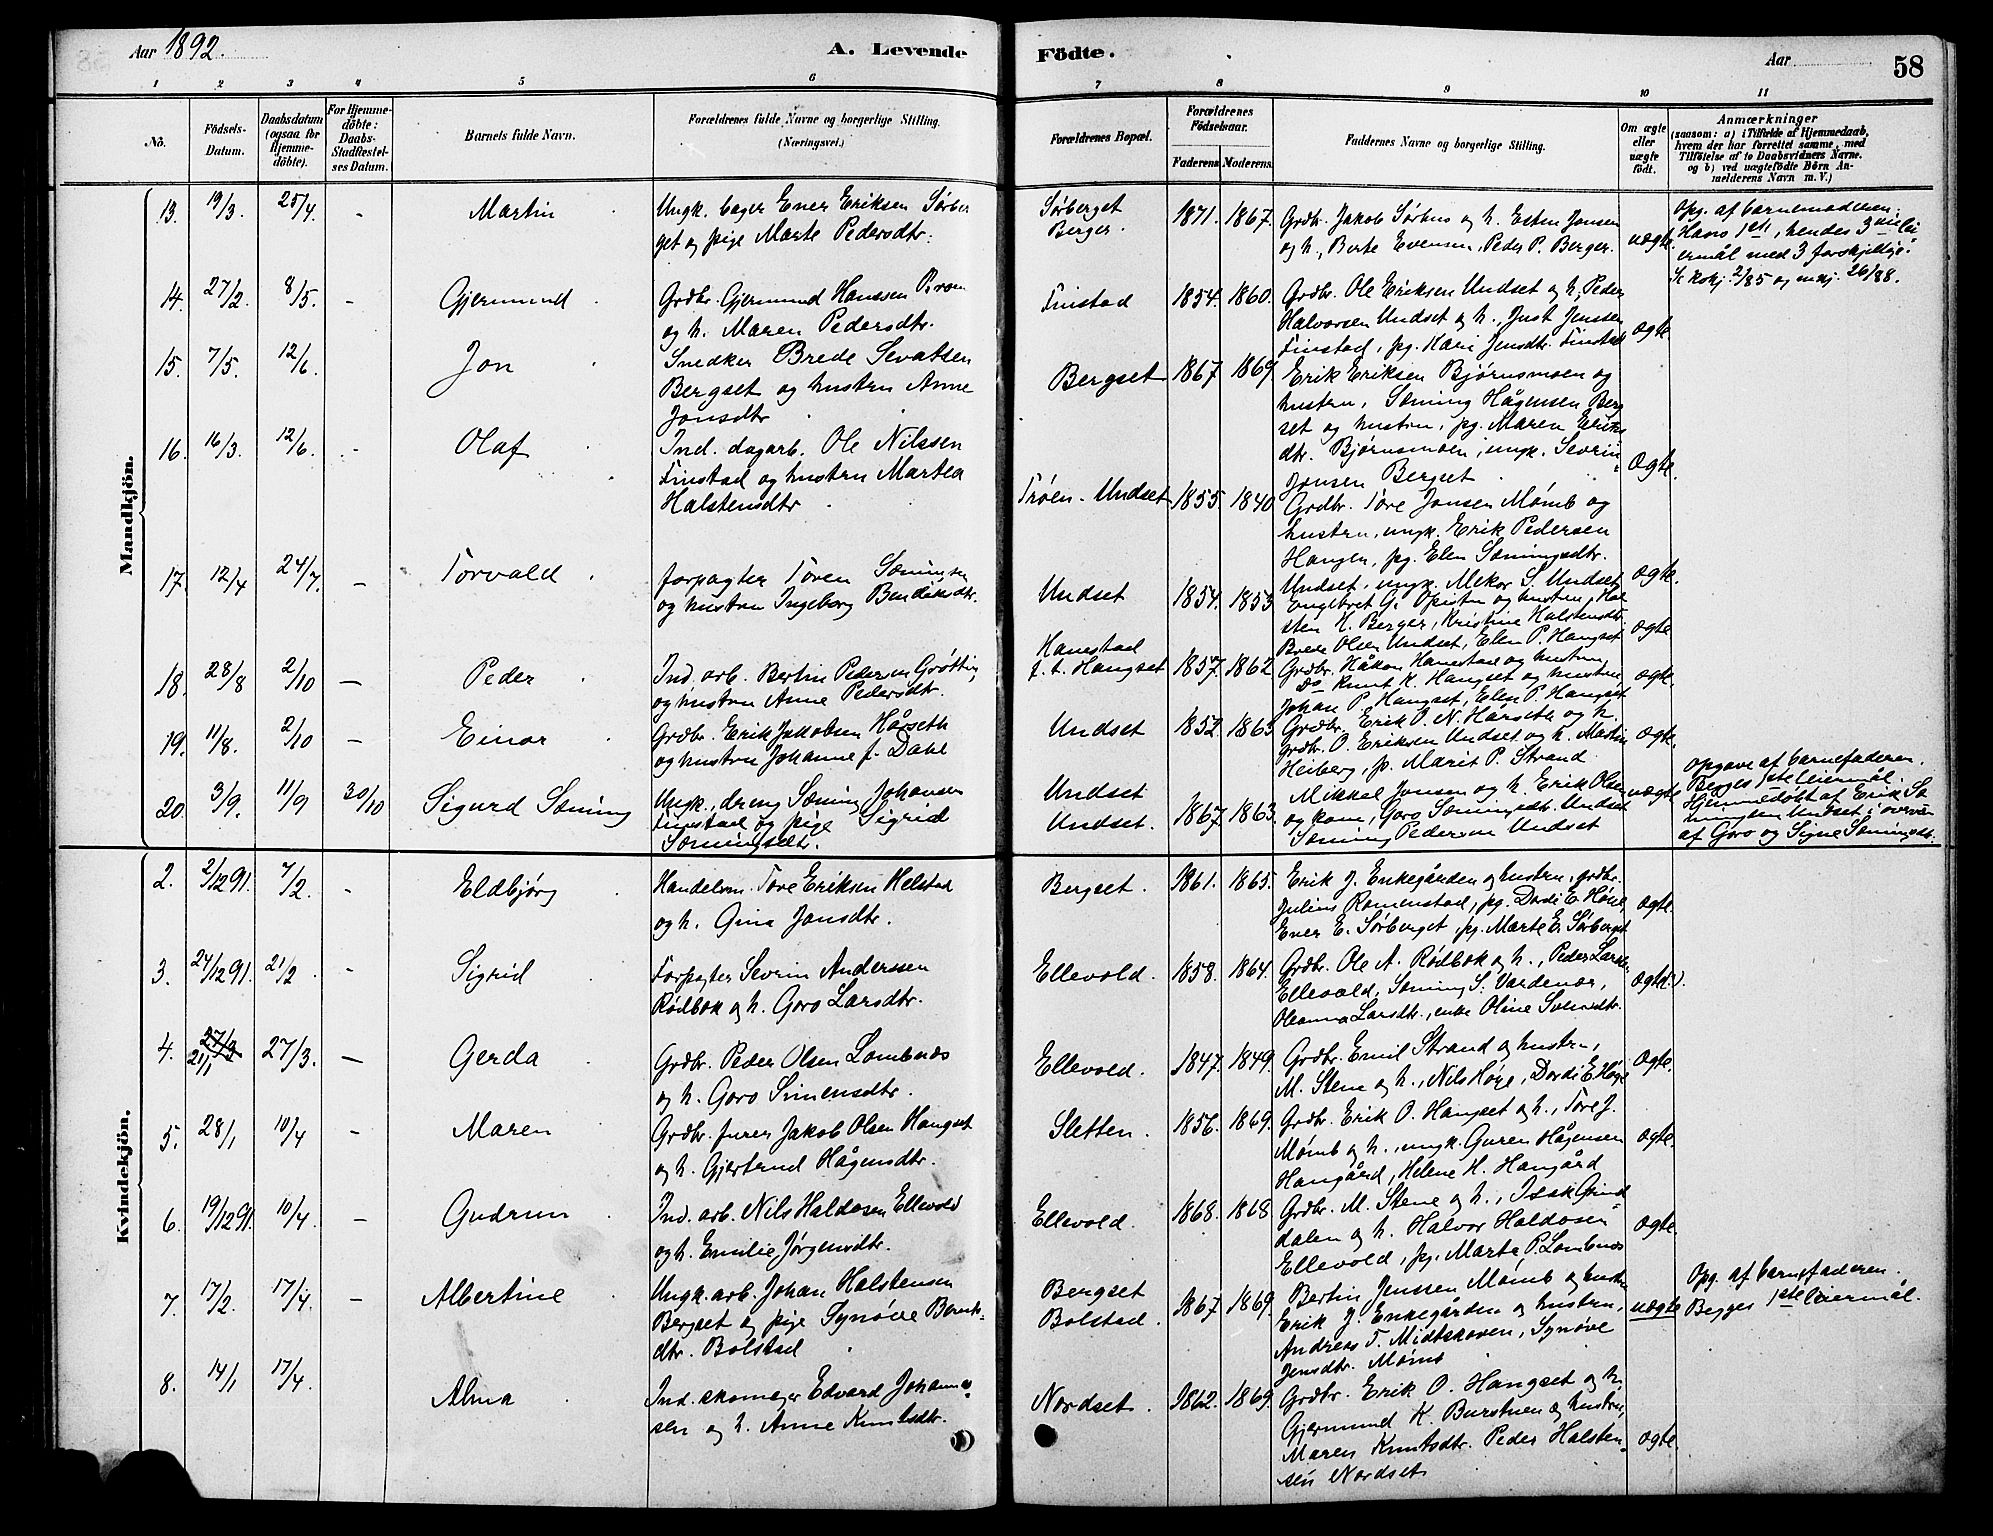 Aar 1892.
A. Levende
Födte.
Aar
58
1 2 3 4 5 6 7 8 9 10 11
No.
Födsels-
Datum.
Daabsdatum
(ogsaa for
Hjemme-
döbte).
For Hjemme-
döbte:
Daabs-
Stadfæstel-
ses Datum.
Barnets fulde Navn.
Forældrenes fulde Navne og borgerlige Stilling.
(Næringsvei.)
Forældrenes Bopæl.
Forældrenes
Födselsaar.
Faderens. Moderens.
Faddernes Navne og borgerlige Stilling.
Om ægte
eller
uægte
födt.
Anmærkninger
(saasom: a) i Tilfælde af Hjemmedaab,
hvem der har forrettet samme, med
Tilföielse af to Daabsvidners Navne.
og b) ved uægtefödte Börn An-
melderens Navn m. V.)
Mandkjön.
13. 19/3. 25/4. - Martin
Ungk. bager Ener Eriksen Sørber
get og pige Marte Pedersdtr.
Sørberget
Berger.
1871. 1867.
Grdbr. Jakob Sørhus og h. Esten Jonsen
og h., Berte Evensen, Peder P. Berger.
uægte.
Opg. af barnemoderen.
Hans 1ste, hendes 3die lei
ermål med 3 forskjellige.
14. 27/2. 8/5. - Gjermund
Grdbr. Gjermund Hanssen
og h. Maren Pedersdtr.
Finstad
1854. 1860.
Grdbr. Ole Eriksen Undset og h., Peder
Halvorsen Undset og h., Just Jenssen
Finstad, pg. Kari Jensdtr. Finstad
ægte.
15. 7/5. 12/6. Jon
Snedker Brede Sevatsen
Bergset og hustru Anne
Jonsdtr
Bergset
1867 1869
Erik Eriksen Bjørnsmoen og
hustru, Sæming Hågensen Berg
set og hustru, pg. Maren Eriks
dtr. Bjørnsmoen, ungk. Sevrin
Jonsen Bergset
ægte.
16. 16/3. 12/6. - Olaf
Ind. dagarb. Ole Nilssen
Finstad og hustru Martea
Halstensdtr
Trøen - Undset
1855. 1840
Grdbr. Tore Jonsen Mømb og
hustru, ungk. Erik Pedersen
Hangen, pg. Elen Sæmingsdtr.
Undset, ungk. Mekor S. Undset
ægte.
17. 12/4 24/7. - Torvald
forpagter Toren Sæmingsen
og hustru Ingeborg Bendiksdtr.
Undset
1854. 1853
Engebret G. Opsten og hustru, Hal
sten H. Berger, Kristine Halstensdtr.
Brede Olsen Undset, Elen P. Hangset
ægte
18. 28/8 2/10 - Peder
Ind. arb. Bertin Pedersen Grøtting
og hustru Anne Pedersdtr.
Hanestad
f. t. Hangset
1857. 1862
Grdbr. Håkon Hanestad og hustru,
Do Knut K. Hangset og hustru
Johan P. Hangset, Elen P. Hangset
ægte.
19. 11/8. 2/10 - Einar
Grdbr. Erik Jakobsen Hårseth
og hustru Johanne f. Dahl
Undset
1852. 1863
Grdbr. Erik O. N. Hårseth og h.
grdbr. O. Eriksen Undset og h. Martin
Heiberg, p. Marit P. Strand
ægte.
20. 3/9. 11/9 30/10 Sigurd Sæming
Ungk., dreng Sæming Johansen
Finstad og pige Sigrid
Sæmingsdtr.
Undset
Undset.
1867 1863.
Mikkel Jonsen og h. Erik Olsen
og kone, Goro Sæmingsdtr. Undset
Sæming Pedersen Undset
uægte
Opgave af barnefaderen.
Begges 1ste leiermål.
Hjemmedøbt af Erik Sæ
mingsen Undset i overvær
af Goro og Signe Sæmingsdtr.
Kvindekjön.
2. 2/12 91. 7/2. - Eldbjørg
Handelsm. Tore Eriksen Helstad
og h. Gina Jonsdtr.
Bergset.
1861. 1865.
Erik J. Enkegården og hustru, grdbr.
Julius Romenstad, pg. Dordi E. Høye,
Ener E. Sørberget, pg. Marte E. Sørberget
ægte.
3. 24/12 91. 21/2 - Sigrid
Forpagter Sevrin Anderssen
Rødbok og h. Goro Larsdtr.
Ellevold.
1858. 1864.
Grdbr. Ole A. Rødbok og h., Peder Larsen
Ellevold, Sæming S. Vardenær,
Oleanna Larsdtr., enke Oline
ægte
4. 27/3 21/1 27/3. - Gerda
Grdbr. Peder Olsen Lombnæs
og h. Goro Simensdtr.
Ellevold.
1847. 1849.
Grdbr. Emil Strand og hustru,
M. Stene og h., Nils Høye, Dordi E. Høye
ægte.
5. 28/1 10/4 - Maren
Grdbr. furer Jakob Olsen Hangset
og h. Gjertrud Hågensdtr.
Sletten.
1856. 1869.
Grdbr. Erik O. Hangset og h., Tore J.
Mømb og h., ungk. Guren Hågensen
Hangård, Helene H. Hangård
ægte.
6. 19/12 91. 10/4. - Gudrun
Ind. arb. Nils Haldosen Ellevold
og h. Emilie Jørgensdtr.
Ellevold.
1868. 1868
Grdbr. M. Stene og h., Isak Grind
dalen og h. Halvor Haldosen
Ellevold, pg. Marte P. Lombnæs
ægte.
7. 17/2. 17/4. - Albertine
Ungk. arb. Johan Halstensen
Bergset og pige Synøve Bernt-
dtr. Bolstad
Bergset
Bolstad.
1867. 1869.
Bertin Jenssen Mømb og hustru
Erik J. Enkegården og hustru,
Andreas T. Midtskoven, Synøve
Jensdtr. Mømb
uægte
Opg. af barnefaderen.
Begges 1ste leiermål.
8. 14/1 17/4. Alma
Ind. skomager Edvard Johanne-
sen og h. Anne Knutsdtr.
Nordset.
1862. 1869.
Grdbr. Erik O. Hangset og h.
Gjermund K. Burstuen og hustru,
Maren Knutsdtr. Peder Halsten-
sen Nordset
ægte.